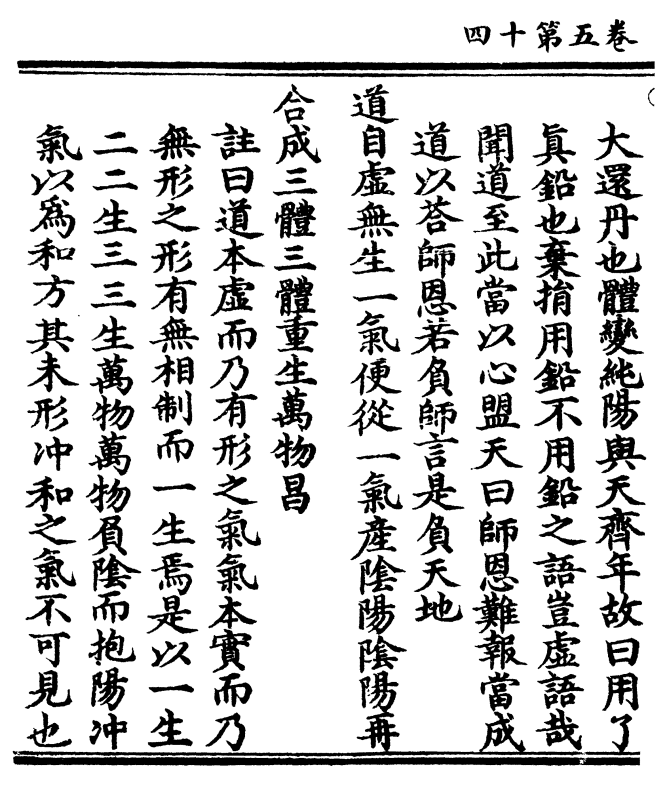 卷五第十四
大還丹也體變純陽與天齊年故曰用了
眞鉛也棄捐用鉛不用鉛之語豈虛語哉
聞道至此當以心盟天曰師恩難報當成
道以荅師恩若負師言是負天地
道自虛無生一氣便從一氣產陰陽陰陽再
合成三體三體重生萬物昌
註曰道本虛而乃有形之氣氣本實而乃
無形之形有無相制而一生焉是以一生
二二生三三生萬物萬物負陰而抱陽冲
氣以爲和方其未形冲和之氣不可見也